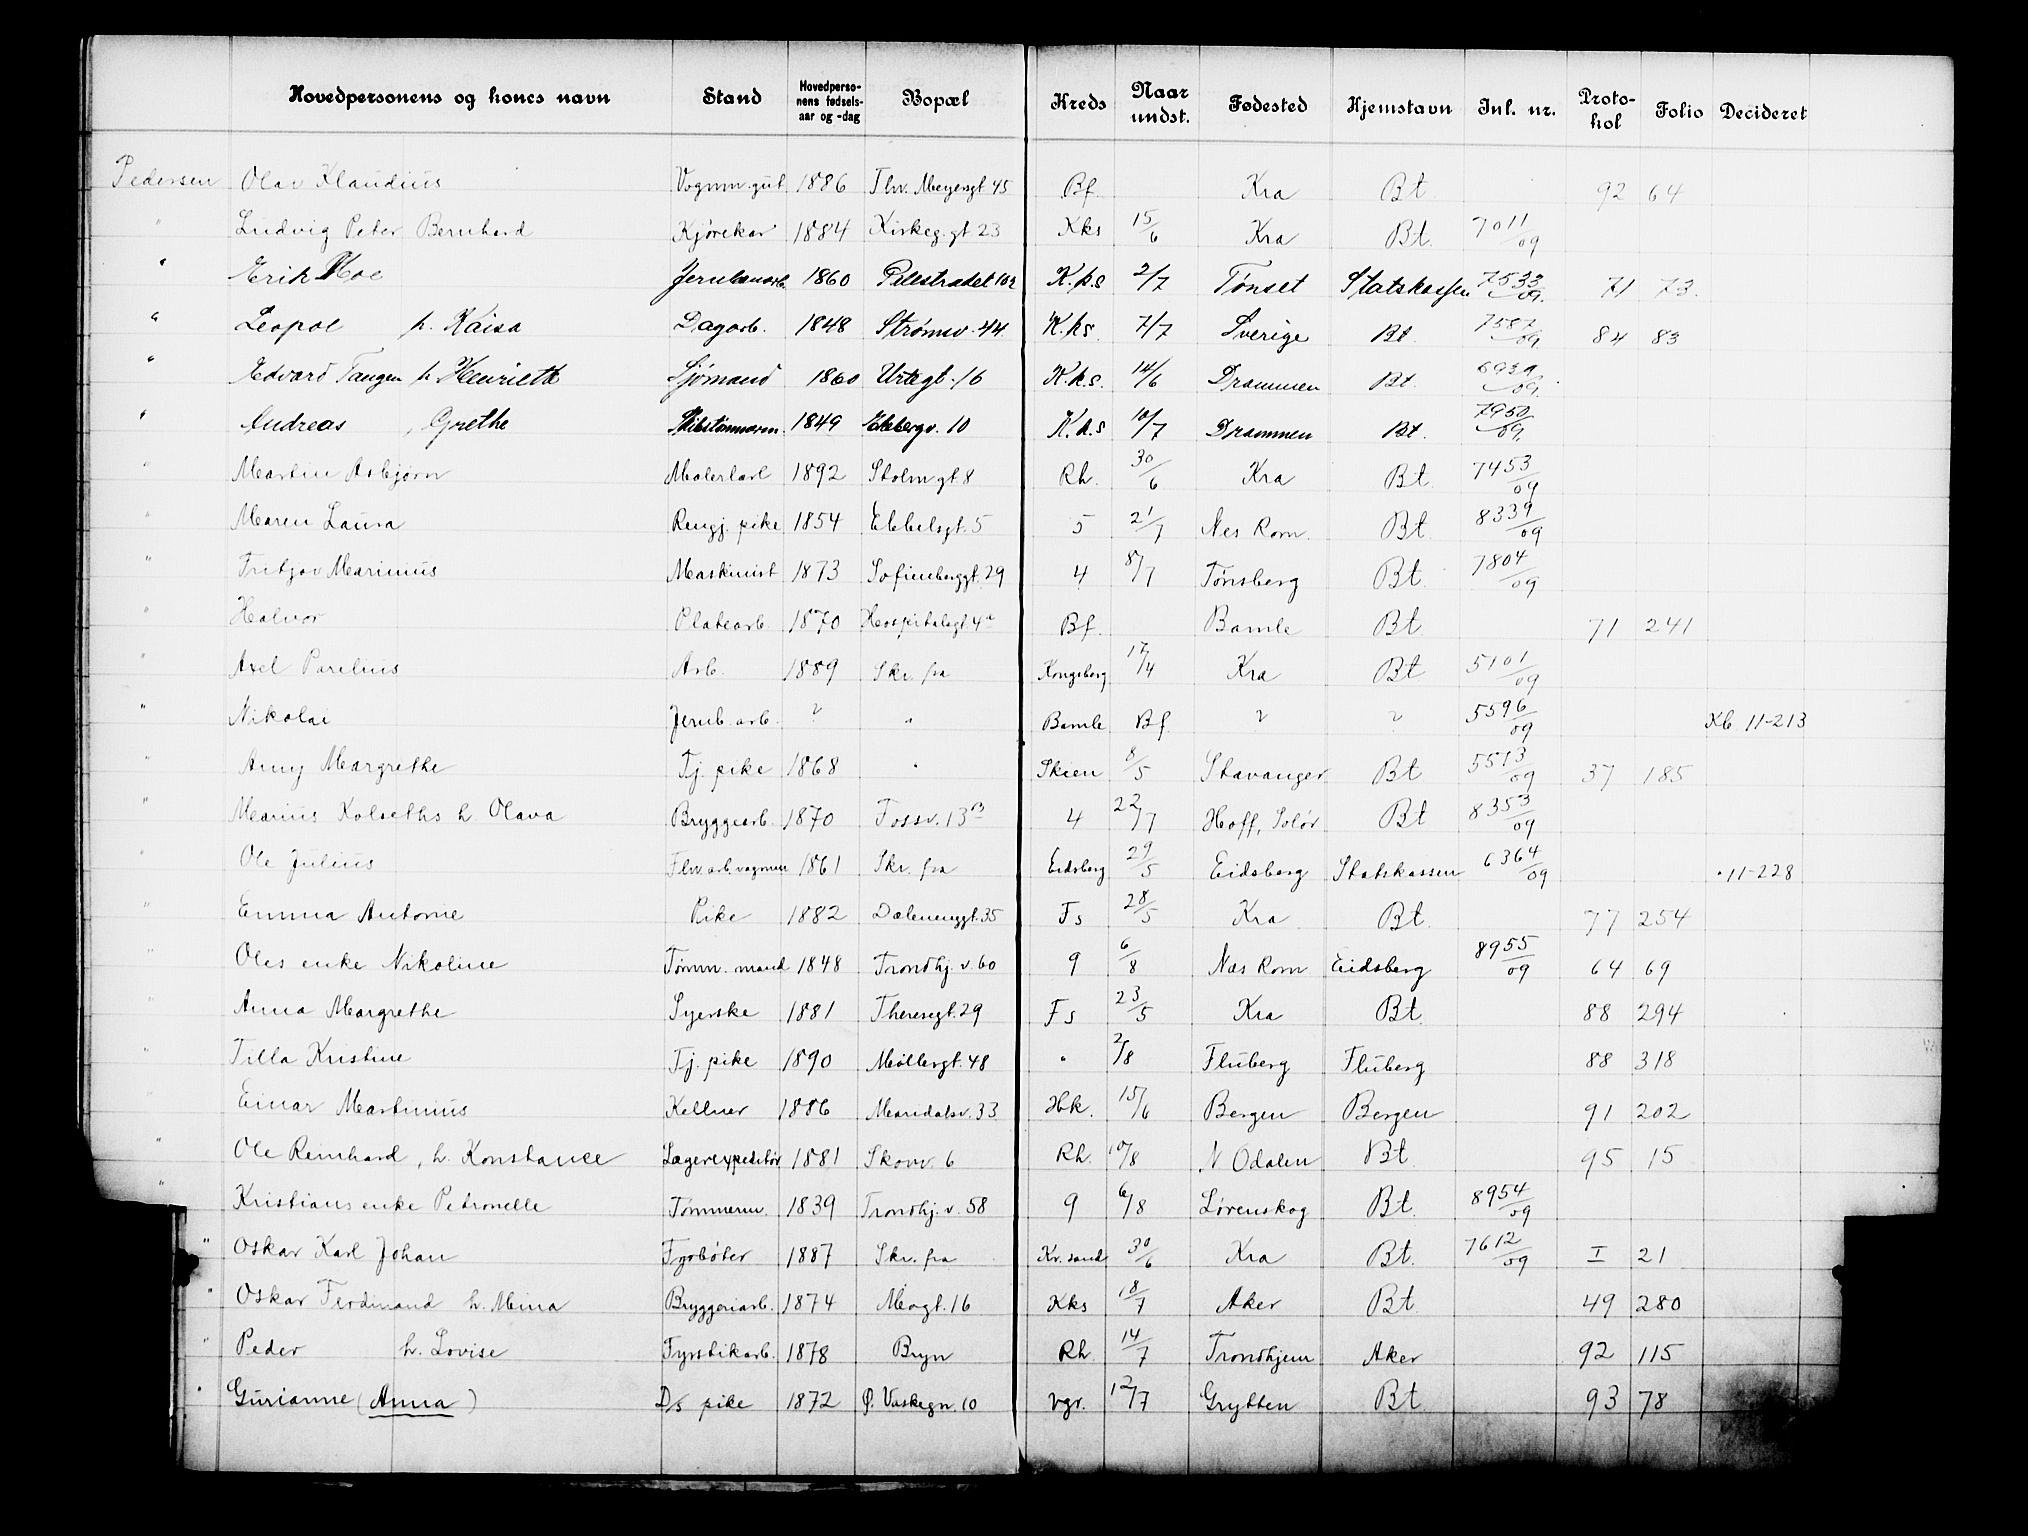 Hovedpersonens og kones navn Stand Hovedpersonens fødselsaar og -dag Bopæl Kreds Naar undst. Fødested Hjemstavn Inl. nr. Protokol Folio Decideret
Pedersen Olav Klaudius Vognm.gut 1886 Thv. Meyersgt 45 Bf. Kra Bt. 92 64
" Ludvig Peter Bernhard Kjørekar 1884 Kirkeg.gt 23 Kks 15/6 Kra Bt. 7011/09
" Erik Moe Jernbanearb. 1860 Pilestradet 102 K.k.s 2/7 Tønset Statskassen 7533/09. 71 73.
" Leopol h. Kaisa Dagarb. 1848 Strømsv. 44 K.ks. 7/7 Sverige Bt. 7587/09. 84 83
" Edvard Tangen h Henriette Sjømand 1860 Urtegt. 16 K.k.s. 14/6 Drammen Bt. 693/09.
" Andreas , Grethe 1849 Ekebergv. 10 K.k.s 10/7 Drammen Bt. 7950/09.
" Martin Asbjørn Malerlærl 1892 Stolm gt 8 Rh. 30/6 Kra Bt. 7453/09
" Maren Laura Rengj. pike 1854 Ebbelsgt. 5 5 21/7 Nes Rom. Bt. 8339/09
" Fritjov Marinius Maskinist 1873 Sofienberggt. 29 4 8/7 Tønsberg Bt. 7804/09
" Halvor Platearb. 1870 Hospitalsgt. 4a Bf. Bamle Bt. 71 241
" Axel Parelius Arb. 1889 Skr. fra Kongsberg 17/4 Kra Bt 5101/09
" Nikolai Jernb. arb. ? " Bamle Bf. ? ? 5596/09 Kb. 11-213
" Anny Margrethe Tj. pike 1868 " Skien 8/5 Stavanger Bt 5513/09 37 185
" Marius Kolseths h. Olava Bryggearb. 1870 Fossv. 13B 4 22/7 Hoff, Solør Bt 8353/09
" Ole Julius Thv. arb. vognm 1861 Skr. fra Eidsberg 29/5 Eidsberg Statskassen 6364/09 " 11-228
" Emma Antonie Pike 1882 Dælenenggt. 35 Fs 28/5 Kra Bt. 77 254
" Oles enke Nikoline Tømm. mand 1848 Trondhj. v. 60 9 6/8 Nes Rom Eidsberg 8955/09 64 69
" Anna Margrethe Syerske 1881 Theresegt. 29 Fs 23/5 Kra Bt. 88 294
" Tilla Kristine Tj. pike 1890 Møllergt. 48 " 2/8 Fluberg Fluberg 88 318
" Einar Martinius Kellner 1886 Maridalsv. 33 Hk. 15/6 Bergen Bergen 91 202
" Ole Reinhard, h. Konstance Lagerexpeditør 1881 Skovv. 6 Rh. 10/8 N Odalen Bt. 95 15
" Kristians enke Petronelle Tømmerm. 1839 Trondhj. v. 58 9 6/8 Lørenskog Bt. 8954/09
" Oskar Karl Johan Fyrbøter 1887 Skr. fra Kr.sand 30/6 Kra Bt. 7612/09 I 21
" Oskar Ferdinand h. Mina Bryggeriarb. 1874 Mogt. 16 Kks 18/7 Aker Bt. 49 280
" Peder h. Lovise Fyrstikarb. 1878 Bryn Rh. 14/7 Trondhjem Aker 92 115
" Gurianne (Anna) D/s pike 1872 Ø. Vaskegn 10 Vgr. 12/7 Grytten Bt. 93 78